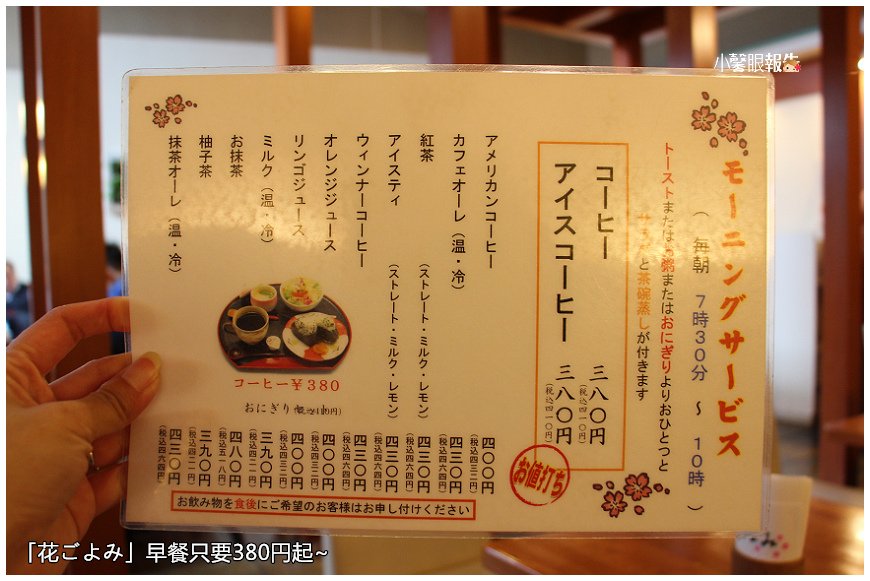 小馨眼報告
モーニングサービス
( 毎朝 7時30分 ～ 10時 )
トーストまたはお粥またはおにぎりよりおひとつと
サラダと茶碗蒸しが付きます
コーヒー 三八〇円
(税込四一〇円)
アイスコーヒー 三八〇円
(税込四一〇円)
お値打ち
アメリカンコーヒー 四〇〇円
(税込四三二円)
カフェオーレ（温・冷） 四三〇円
(税込四六四円)
紅茶 （ストレート・ミルク・レモン） 四三〇円
(税込四六四円)
アイスティ （ストレート・ミルク・レモン） 四三〇円
(税込四六四円)
ウィンナーコーヒー 四三〇円
(税込四六四円)
オレンジジュース 四〇〇円
(税込四三二円)
リンゴジュース 四〇〇円
(税込四三二円)
ミルク（温・冷） 三九〇円
(税込四二一円)
お抹茶 四八〇円
(税込五一八円)
柚子茶 三九〇円
(税込四二一円)
抹茶オーレ（温・冷） 四三〇円
(税込四六四円)
コーヒー￥380
おにぎり
お飲み物を食後にご希望のお客様はお申し付けください
「花ごよみ」早餐只要380円起~